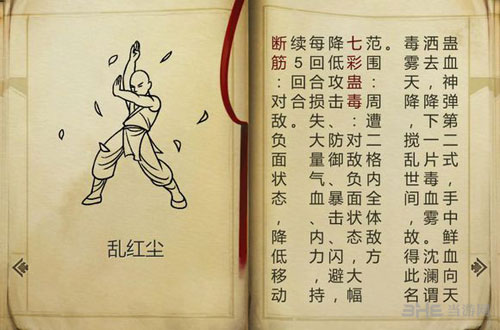 蛊血神弹第二式,手中鲜血向天
洒去,降下一片毒血雾。沈澜谓
毒雾天降,搅乱世间,故得此名
。
范围:周遭二格内全体敌方
七彩蛊毒:对敌负面状态,大幅
降低攻击、防御、暴击、闪避,
每回合损失大量气血、内力,持
续5回合。
断筋:对敌。负面状态,降低移动
乱红尘